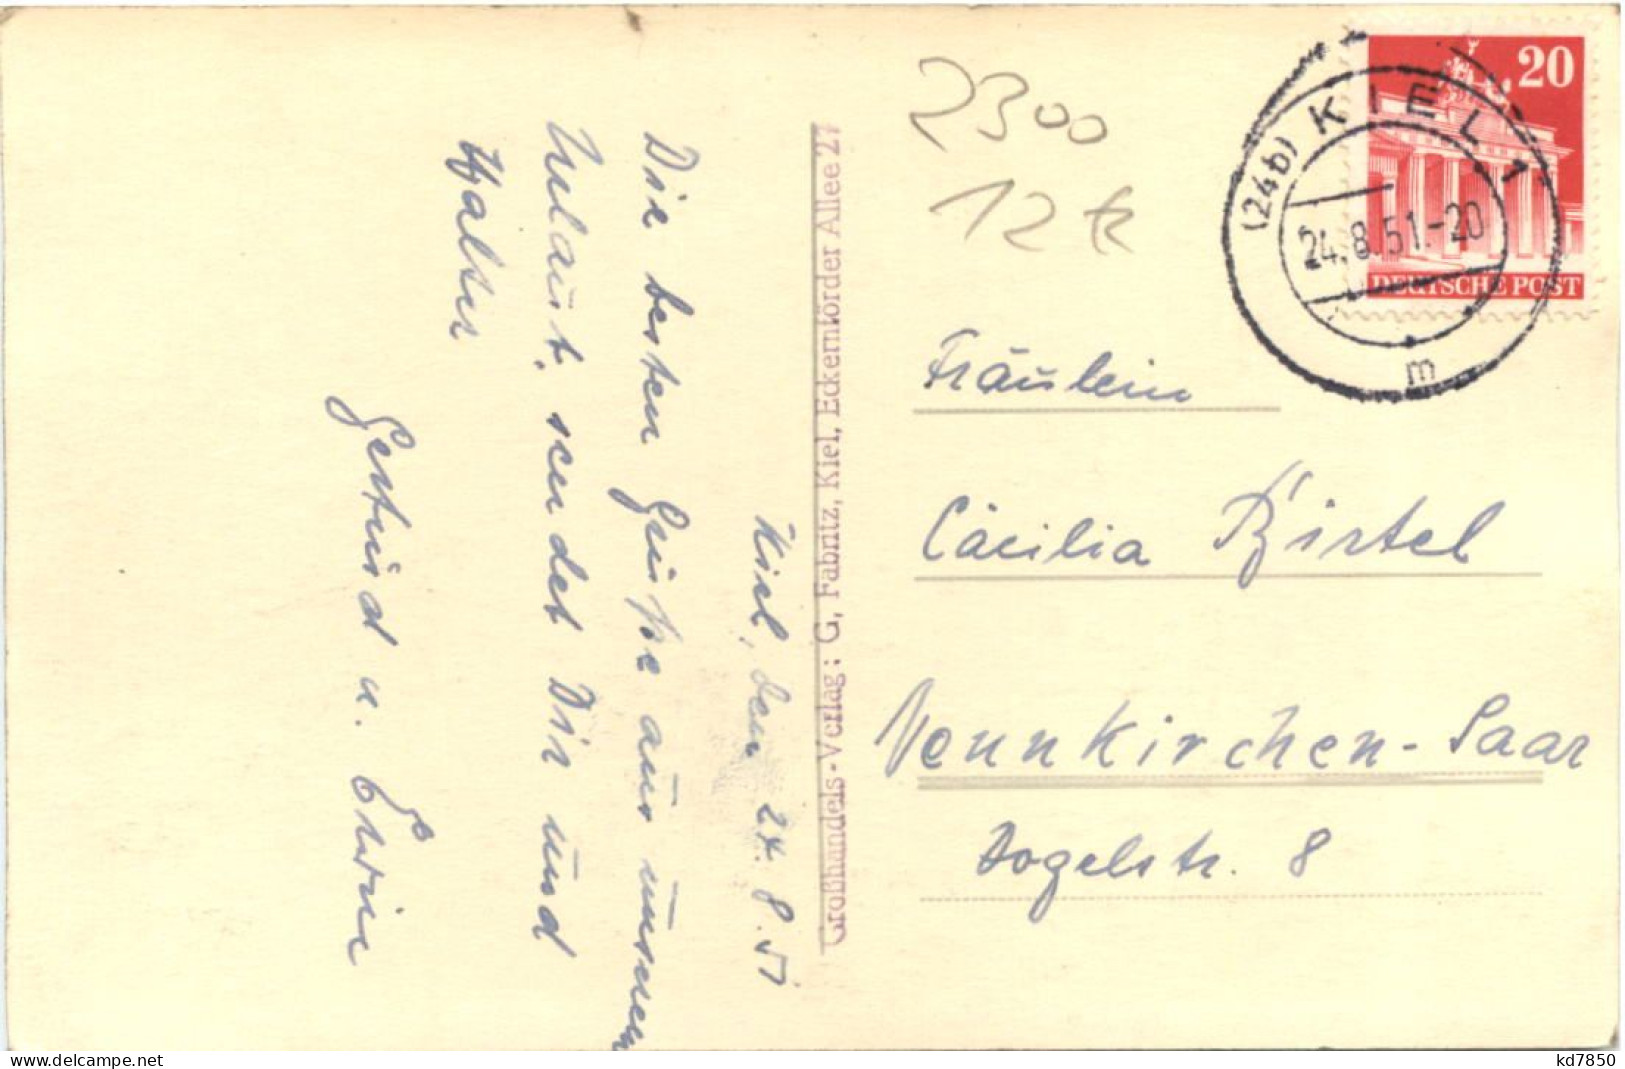 Kiel, den 24.8.51
Die besten Grüße aus unserem
Urlaub, sendet Dir und
Walter
Gertrud u. Erwin
Großhandels-Verlag: G, Fabritz, Kiel, Eckernförder Allee 27
2300
12
20
DEUTSCHE POST
(24b) KIEL 1
24.8.51.-20
m
Fräulein
Cäcilia Birtel
Neunkirchen-Saar
Vogelstr. 8
delcampe.net
kd7850